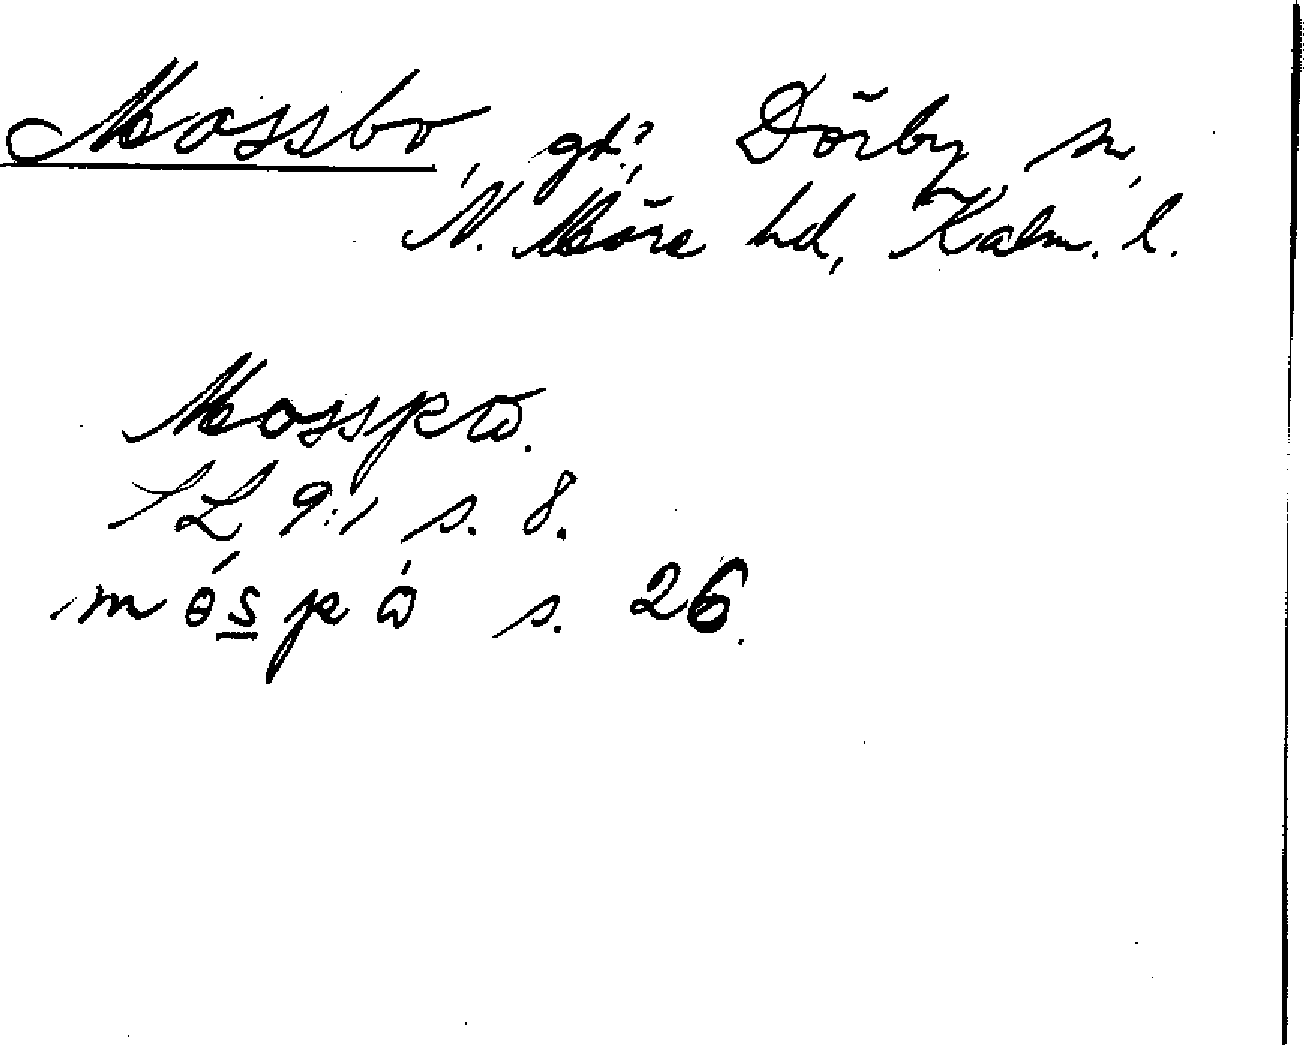 Mossbo, gd?, Dörby sn,
N. Möre hd, Kalm. l.
Mosspo.
SL 9:1 s. 8.
s. 26.